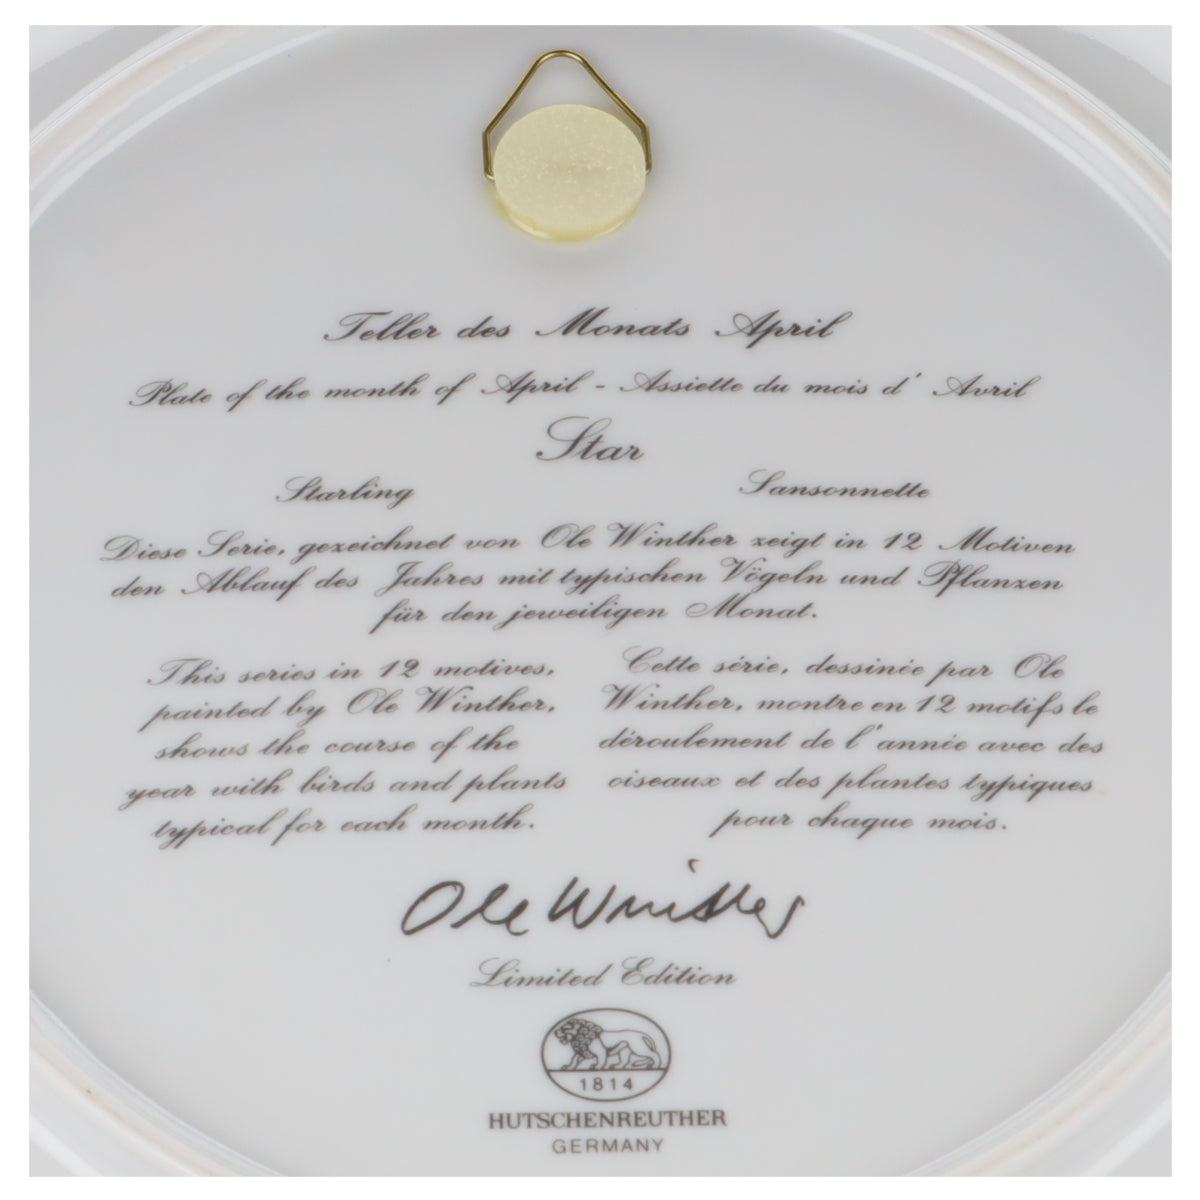 Teller des Monats April
Plate of the month of April - Assiette du mois d' Avril
Star
Starling
Sansonnette
Diese Serie, gezeichnet von Ole Winther zeigt in 12 Motiven
den Ablauf des Jahres mit typischen Vögeln und Pflanzen
für den jeweiligen Monat.
This series in 12 motives,
painted by Ole Winther,
shows the course of the
year with birds and plants
typical for each month.
Cette série, dessinée par Ole
Winther, montre en 12 motifs le
déroulement de l'année avec des
oiseaux et des plantes typiques
pour chaque mois.
Ole Winther
Limited Edition
1814
HUTSCHENREUTHER
GERMANY